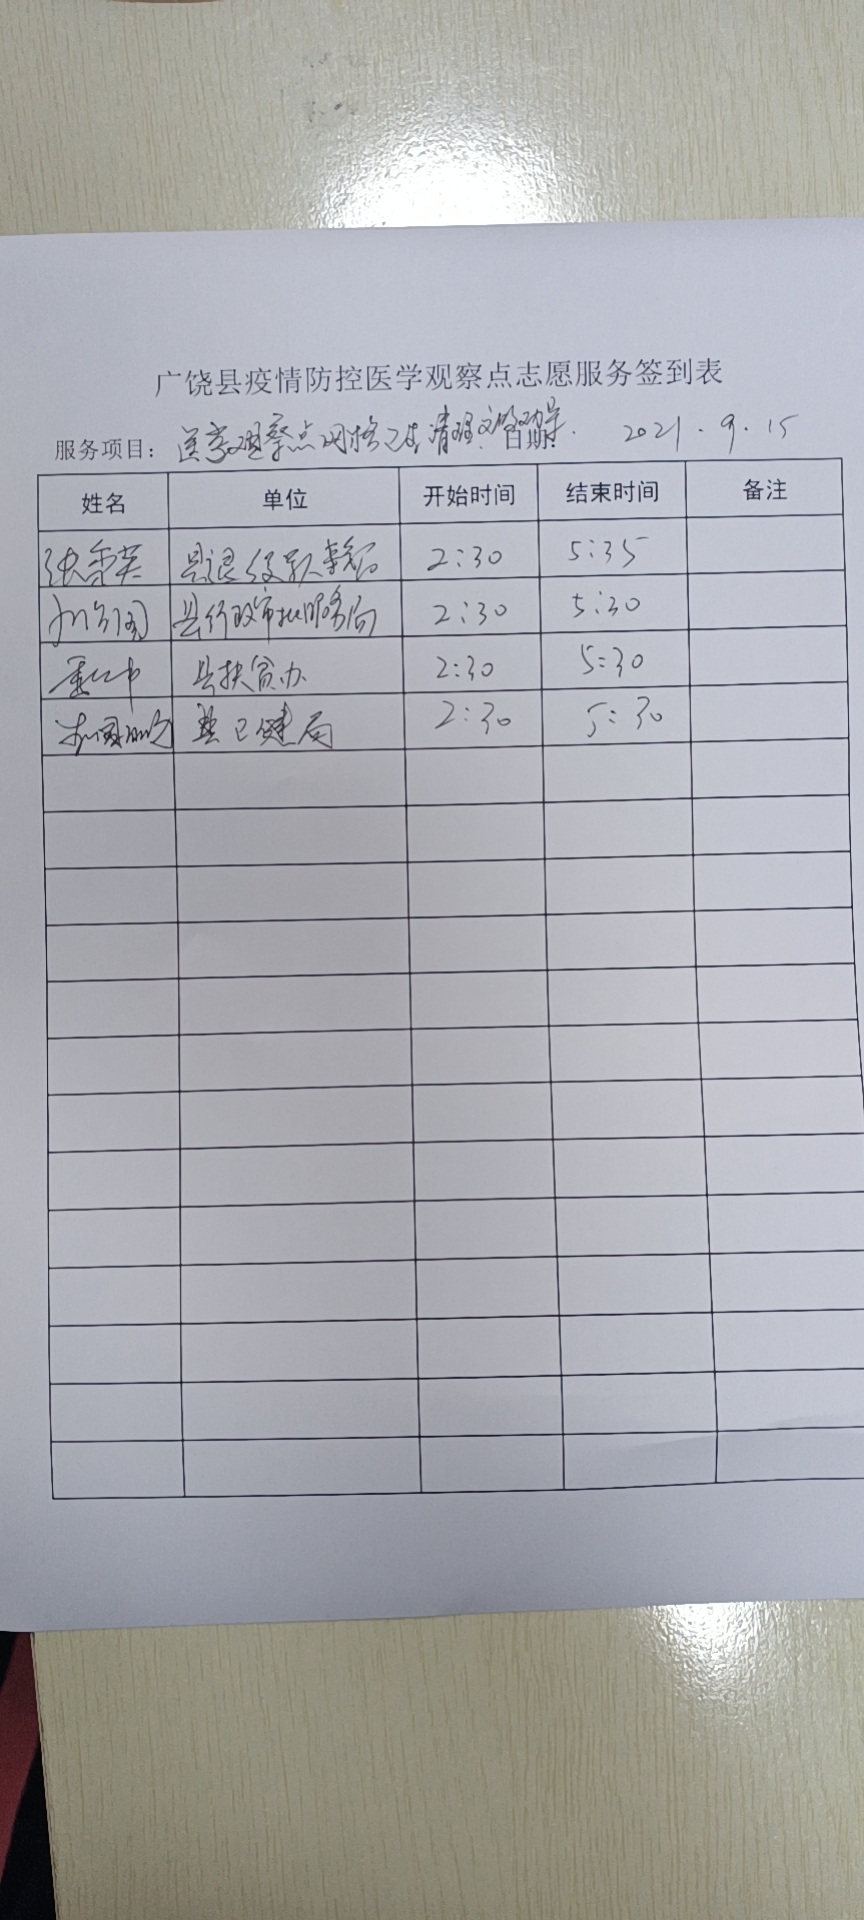 广饶县疫情防控医学观察点志愿服务签到表
服务项目：医学观察点网格卫生清理 日期： 2021.9.15
姓名 单位 开始时间 结束时间 备注
张 英 县退役军人事务局 2:30 5:35
县行政审批服务局 2:30 5:30
县扶贫办 2:30 5:30
县卫健局 2:30 5:30